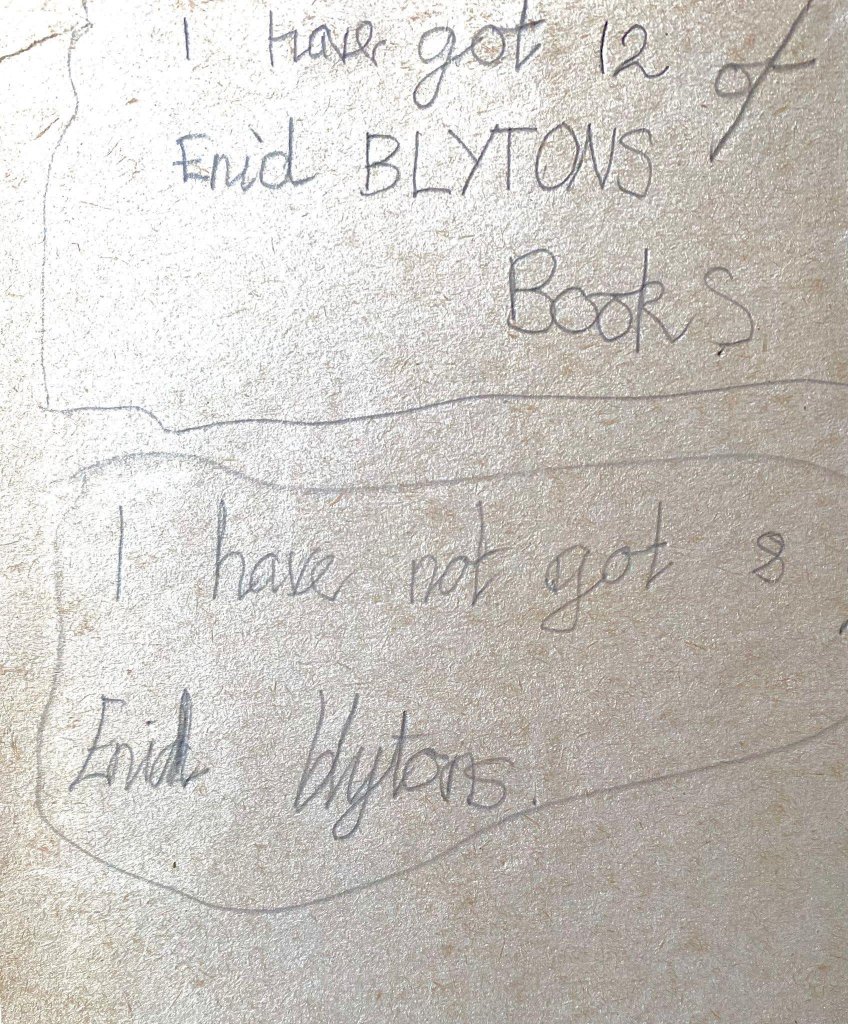 I have got 12 of
Enid BLYTONS
Books
I have not got 8
Enid blytons.